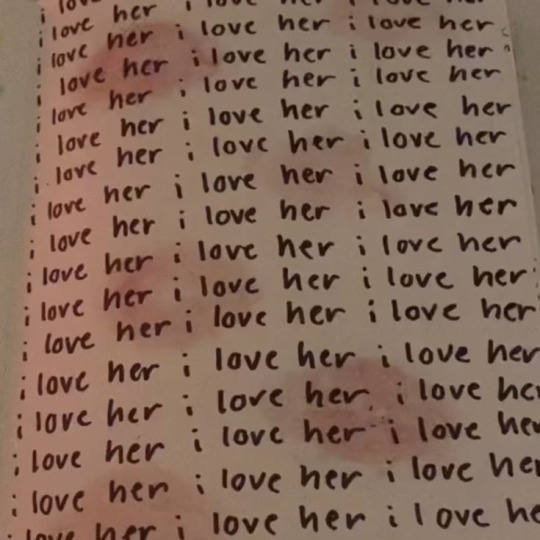 i love her i love her i love her
i love her i love her i love her
i love her i love her i love her
i love her i love her i love her
i love her i love her i love her
i love her i love her i love her
i love her i love her i love her
i love her i love her i love her
i love her i love her i love her
i love her i love her i love her
i love her i love her i love her
i love her i love her i love her
i love her i love her i love he
i love her i love her i love he
i love her i love her i love he
i love her i love her i love he